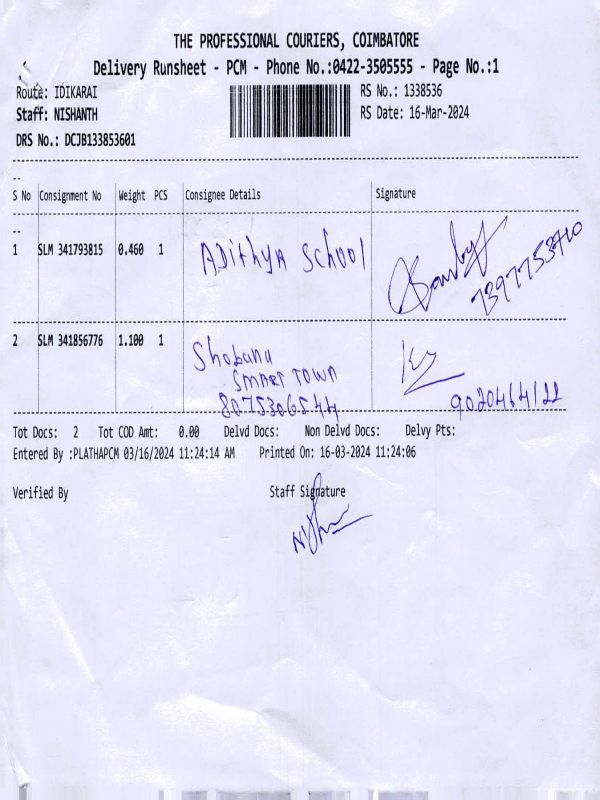 THE PROFESSIONAL COURIERS, COIMBATORE
Delivery Runsheet - PCM - Phone No.:0422-3505555 - Page No.:1
Route: IDIKARAI RS No.: 1338536
Staff: NISHANTH RS Date: 16-Mar-2024
DRS No.: DCJB133853601
--
S No Consignment No Weight PCS Consignee Details Signature
--
1 SLM 341793815 0.460 1 ADithyA School
7397753710
2 SLM 341856776 1.100 1 Shobana
SMART TOWN
8075306544 9020464122
Tot Docs: 2 Tot COD Amt: 0.00 Delvd Docs: Non Delvd Docs: Delvy Pts:
Entered By :PLATHAPCM 03/16/2024 11:24:14 AM Printed On: 16-03-2024 11:24:06
Verified By Staff Signature